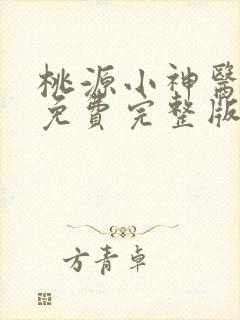 桃源小神醫
免費完整版
方青卓